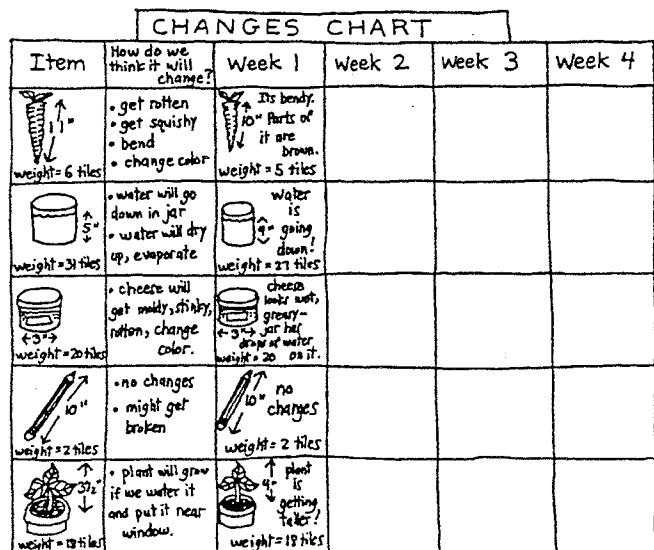 CHANGES CHART
Item
How do we
think it will
change?
Week 1
Week 2
Week 3
Week 4
11"
weight = 6 tiles
• get rotten
• get squishy
• bend
• change color
Its bendy.
10" Parts of
it are
brown.
weight = 5 tiles
5"
weight = 31 tiles
• water will go
down in jar
• water will dry
up, evaporate
water
is
going
down!
4"
weight = 27 tiles
3"
weight = 20 tiles
• cheese will
get moldy, stinky,
rotton, change
color.
cheese
looks wet,
greasy-
3" jar has
drops of water
weight = 20 on it.
10"
weight = 2 tiles
• no changes
• might get
broken
10" no
changes
weight = 2 tiles
3½"
weight = 18 tiles
• plant will grow
if we water it
and put it near
window.
4" plant
is
getting
taller!
weight = 18 tiles